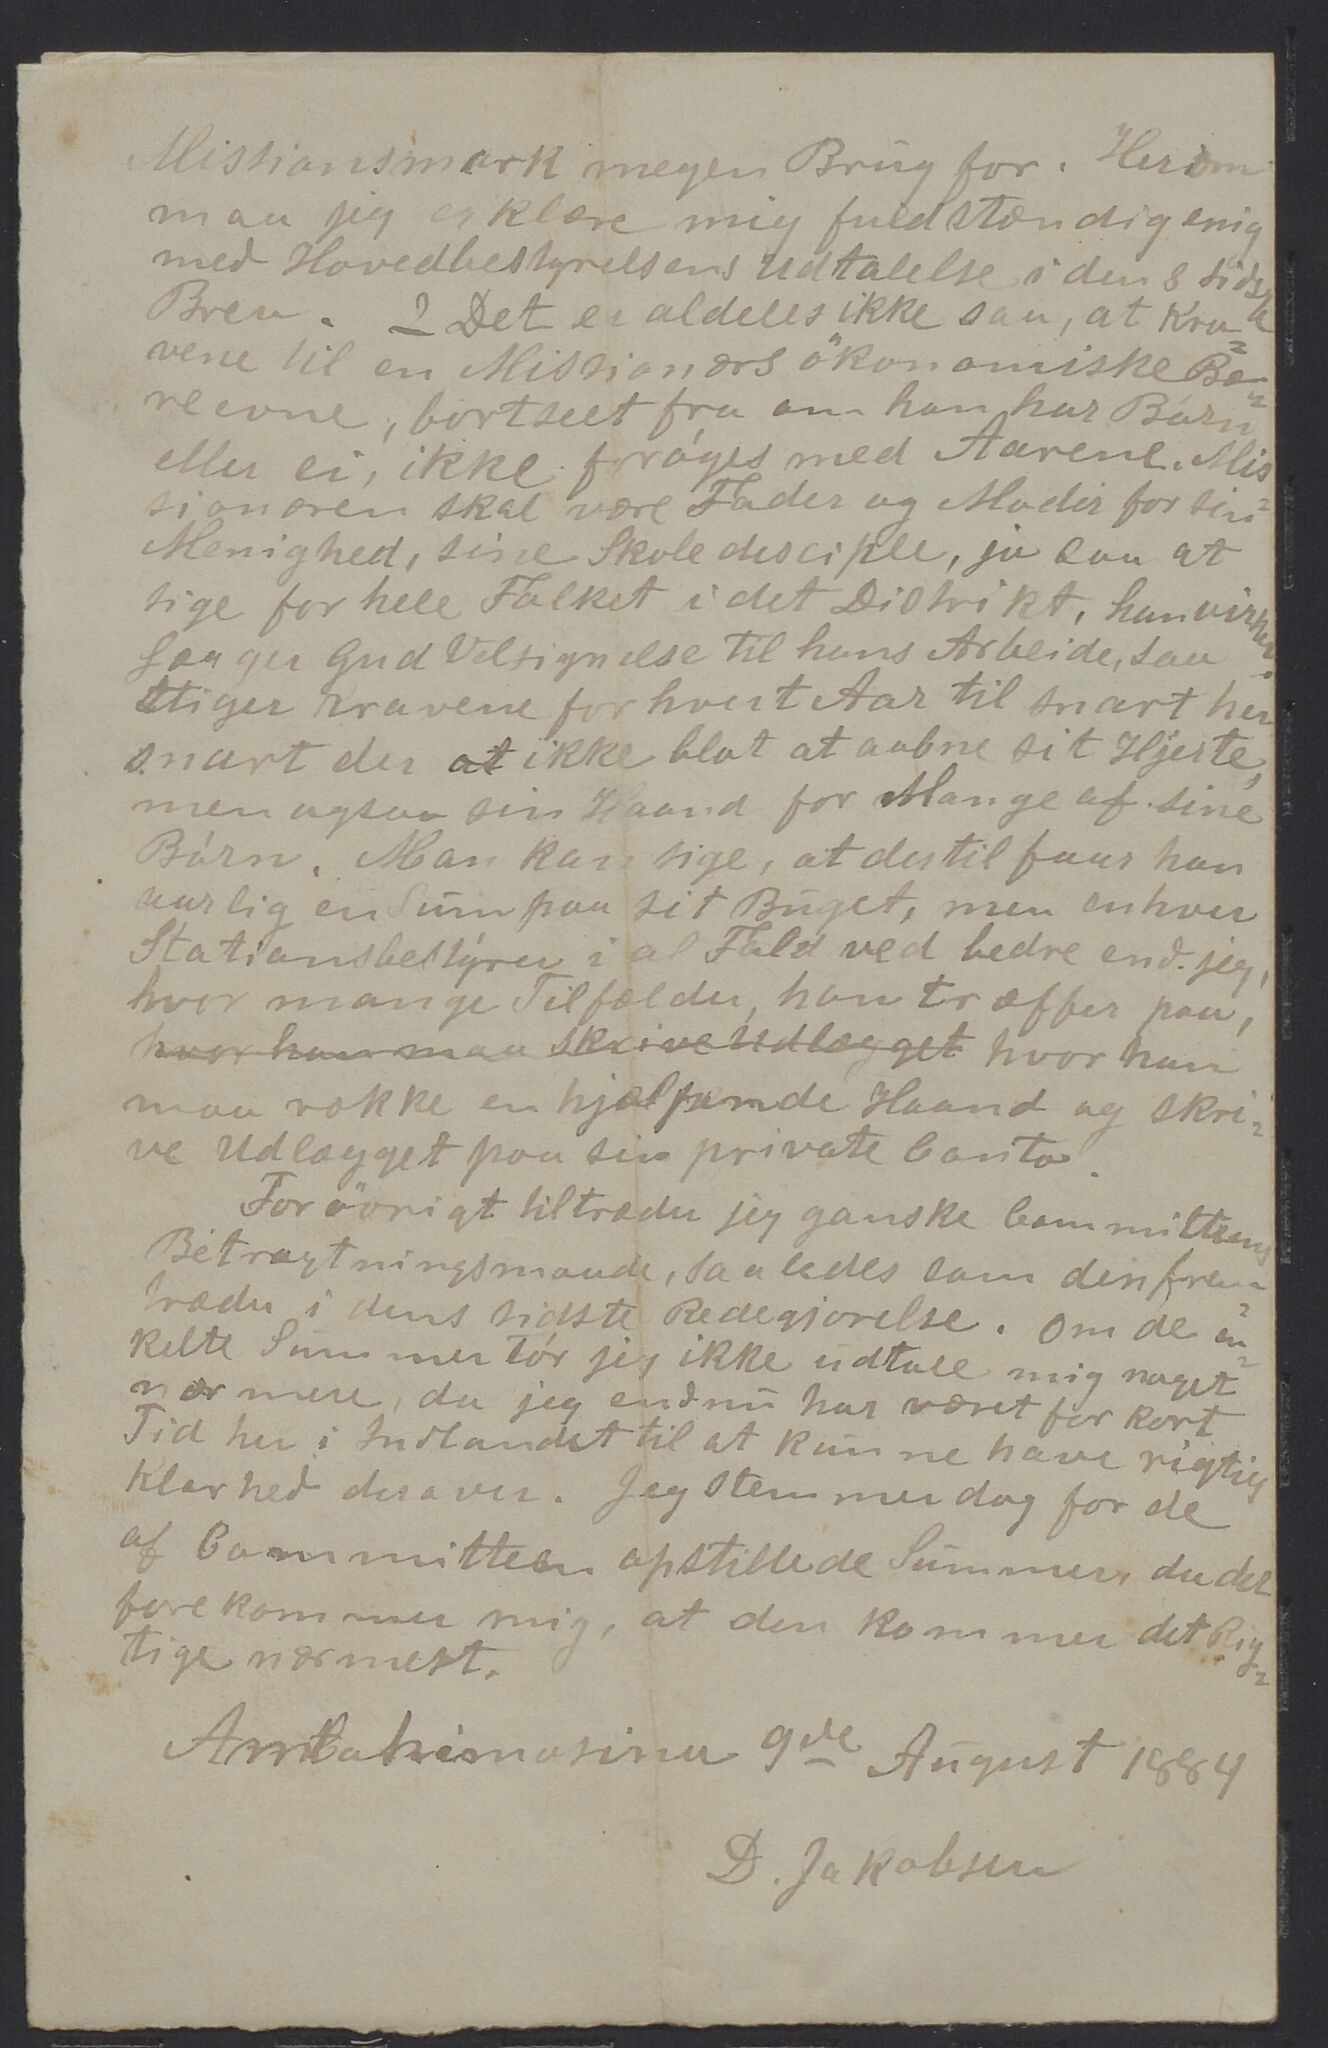 Missionsmark megen Brug for. Herom
maa jeg erklære mig fuldstændig enig
med Hovedbestyrelsens Udtalelse i dens sidste
Brev. 2 Det er aldeles ikke saa, at Kra=
vene til en Missionærs økonomiske Bæ=
reevne, bortseet fra om han har Børn
eller ei, ikke forøges med Aarene. Mis=
sionæren skal være Fader og Moder for sin
Menighed, sine Skoledisciple, ja saa at
sige for hele Folket i det Distrikt, han virker.
Saa ger Gud Velsignelse til hans Arbeide, saa
stiger Kravene for hvert Aar til snart her
snart der at ikke blot at aabne sit Hjerte,
men ogsaa sin Haand for Mange af sine
Børn. Man kan sige, at dertil faar han
aarlig en Sum paa sit Buget, men enhver
Stationsbestyrer i al Fald ved bedre end jeg,
hvor mange Tilfælder, han træffer paa,
hvor han maa skrive Udlægget hvor han
maa række en hjælpende Haand og skri=
ve Udlægget paa sin private Conto.
Forøvrigt tiltræder jeg ganske Committeens
Betragtningsmaade, saaledes som den frem=
træder i dens sidste Redegjørelse. Om de en=
kelte Summer tør jeg ikke udtale mig noget
nærmere, da jeg endnu har været for kort
Tid her i Indlandet til at kunne have rigtig
Klarhed derover. Jeg stemmer dog for de
af Committeen opstillede Summer, da det
forekommer mig, at den kommer det Rig=
tige nærmest.
Ambatolimasina 9de August 1884
D. Jakobsen